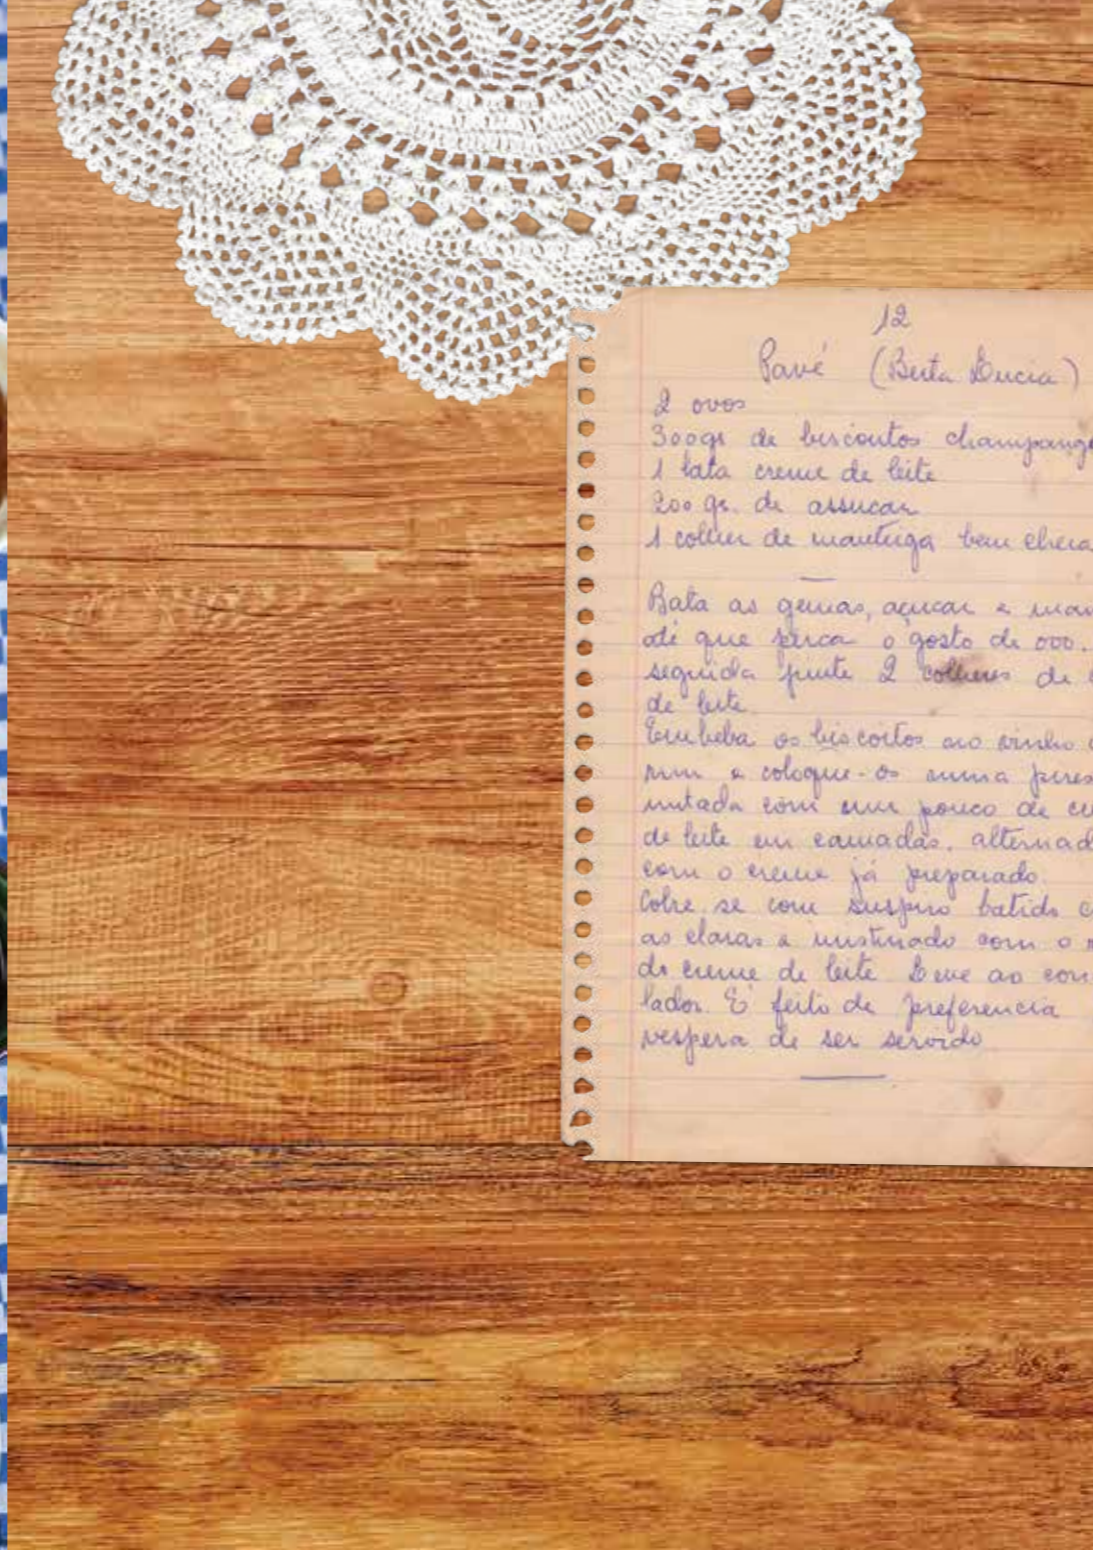 12
Pavé (Berta Lucia)
2 ovos
300gs de biscoutos champang
1 lata creme de leite
200 gs. de assucar
1 colher de manteiga bem cheia
Bata as gemas, açucar e man
até que perca o gosto de ovo.
seguida junte 2 colheres de
de leite
Embeba os biscoitos no vinho
rum e coloque-os numa pirex
untada com um pouco de cr
de leite em camadas, alternad
com o creme já preparado.
Cobre-se com suspiro batido c
as claras e misturado com o r
do creme de leite Leve ao con
lador. É feito de preferencia
vespera de ser servido